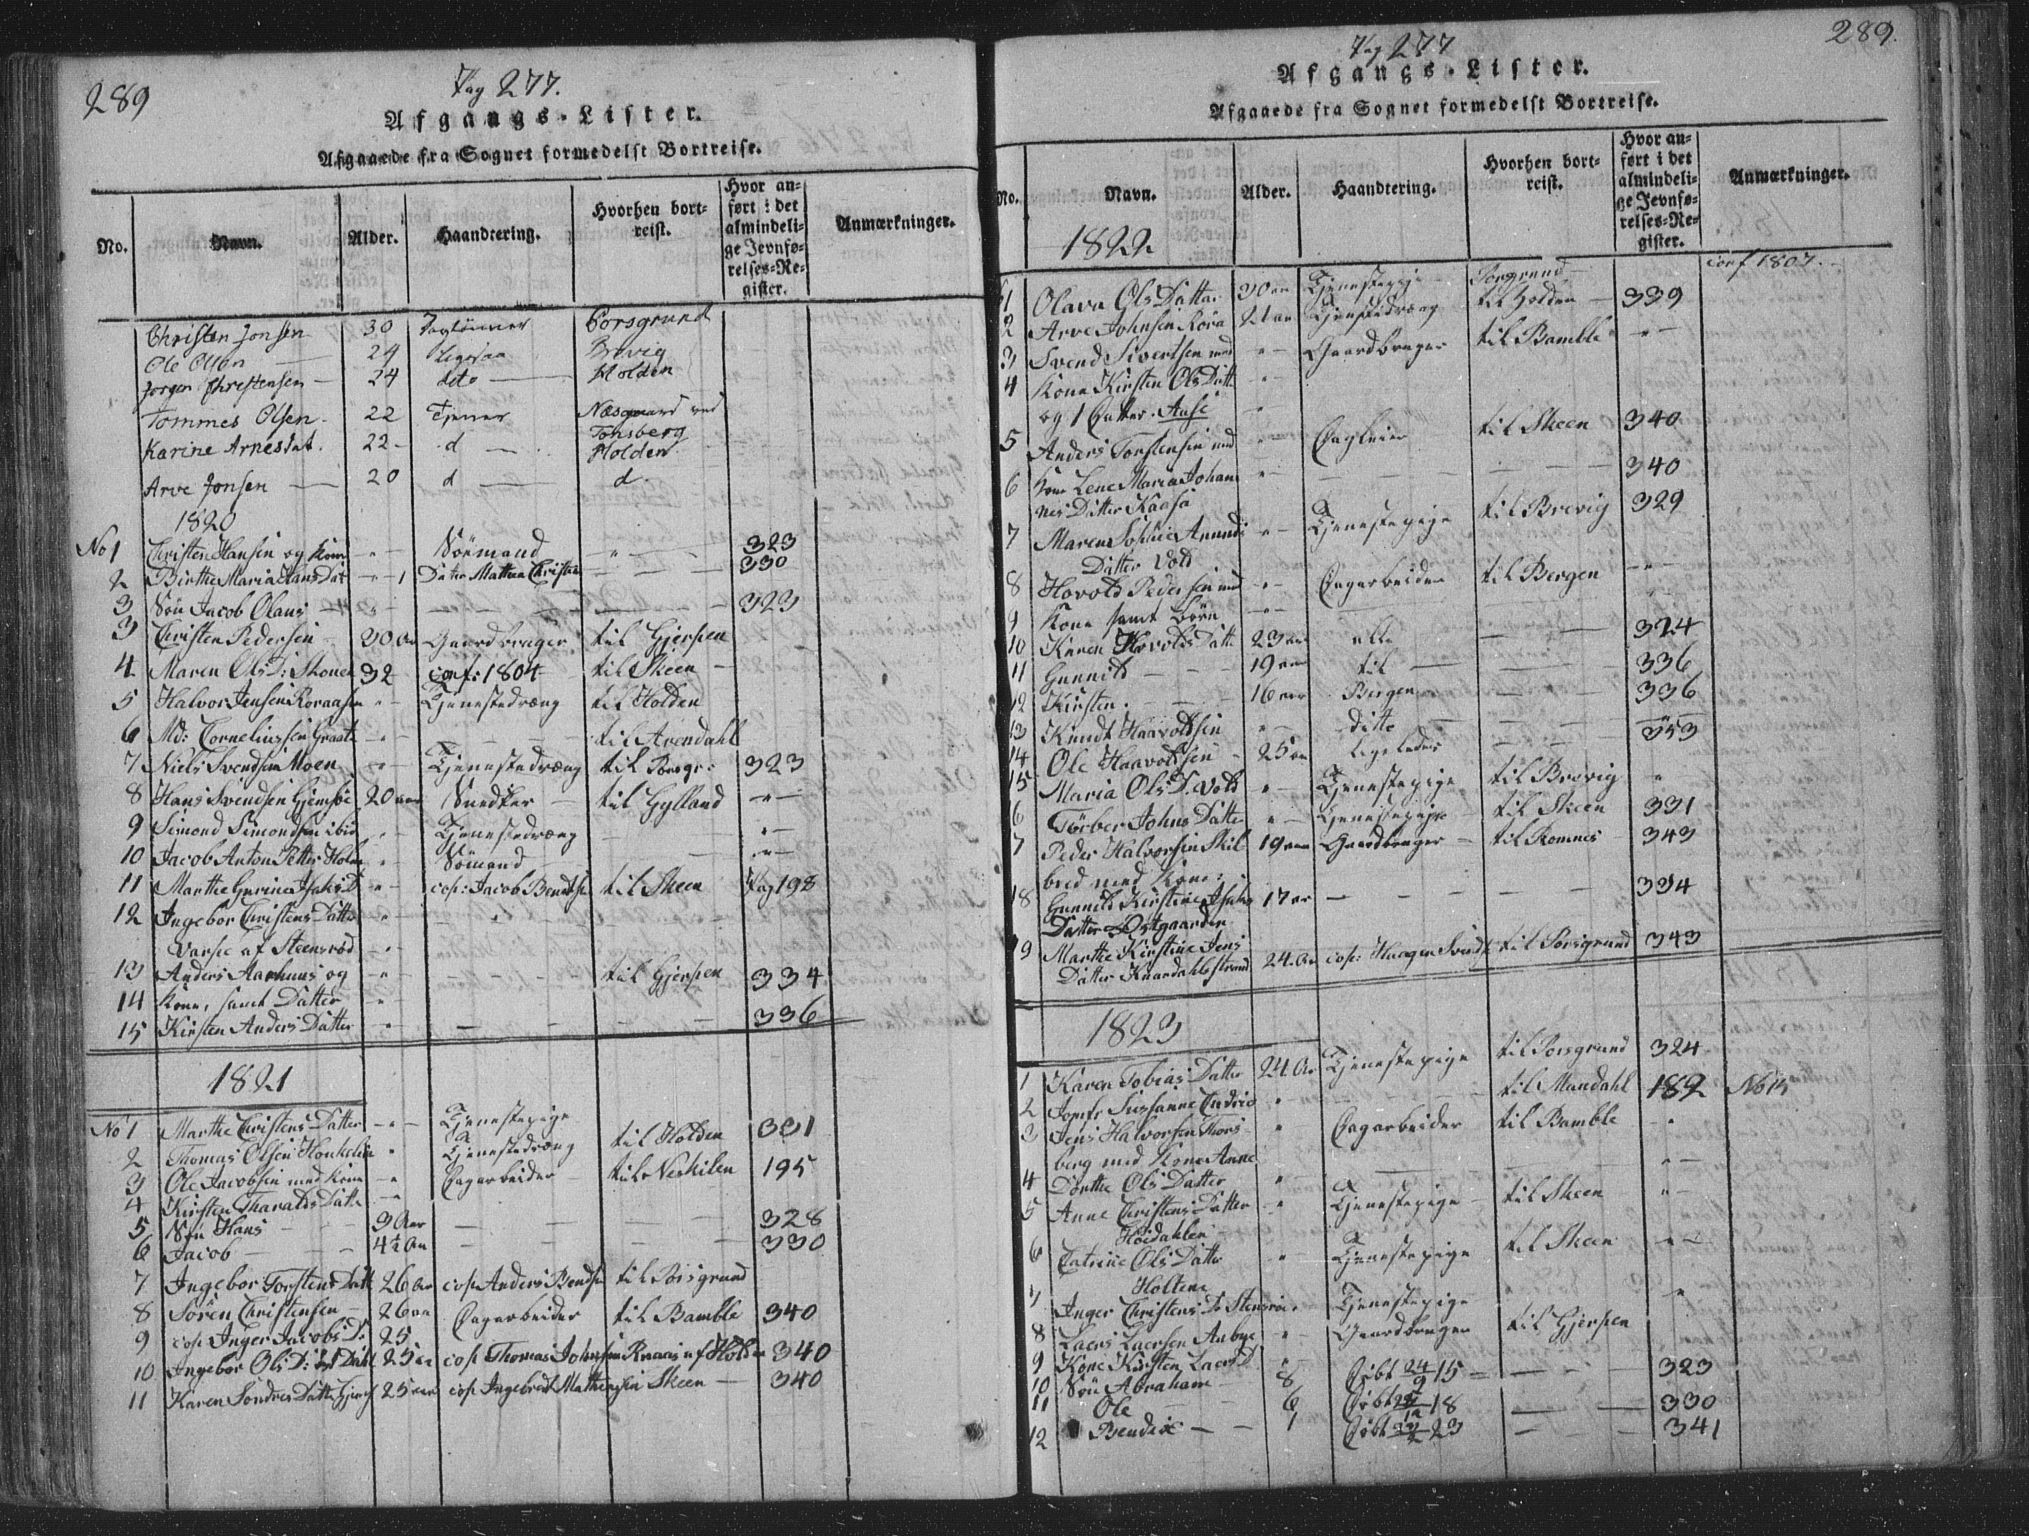 289
Pag 277.
Afgangs-Lister.
Afgaaede fra Sognet formedelst Bortreise.
No. Navn. Alder. Haandtering. Hvorhen bort-reist. Hvor an-ført i det almindeli-ge Jevnfø-relses-Re-gister. Anmærkninger.
Christen Jonsen 30 Porsgrund
Ole Olsen 24 Brevig
Jørgen Christensen 24 dito Holden
Tommes Olsen 22 Tjener Næsgaard ved Tonsberg
Karine Arnesdat. 22 d Holden
Arve Jonsen 20 d d.
1820
No 1 Christen Hansen og Kone Sømand 323
2 Birthe Maria Hans Dat Datter Mathea Christen 330
3 Søn Jacob Olaus 323
3 Christen Pedersen 30 Aar Gaardbruger til Gjerpen
4 Maren Ols D: Skouen 32 conf: 1804 til Skeen
5 Halvor Jensen Roraasen Tjenestedræng til Holden
6 Md: Corneliussen Graate til Arendahl
7 Niels Svendsen Moen Tjenestedræng til Porsgr: 323
8 Hans Svendsen Gjemsøe 20 aar Snedker til Gylland
9 Simond Simondsen ibid Tjenestedræng
10 Jacob Anton Petter Holm Sømand
11 Marthe Gurine Isaks D cop: Jacob Bendtsen til Skeen Pag 198
12 Ingebor Christens Datter
Varpe af Steensrød
13 Anders Aarhuus og til Gjerpen 334
14 Kone, samt Datter
15 Kirsten Anders Datter 336
1821
No 1 Marthe Christens Datter Tjenestepige til Holden 331
2 Thomas Olsen Tjenestedræng
3 Ole Jacobsen med Kone Dagarbeider til Neskilen 195
4 Kirsten Tharalds Datt
5 Søn Hans 9 Aar 328
6 Jacob 4½ Aar 330
7 Ingebor Torstens Datt 26 Aar cop Anders Bendsen til Porsgrund
8 Søren Christensen 26 aar Dagarbeider til Bamble 340
9 cop Inger Jacobs D: 25
10 Ingebor Ols D: Dahl 25 aar cop Thomas Johnsen Raaas af Holden 340
11 Karen Sondres Datter Gjems 25 aar cop Ingebret Mathiesen Skeen 340
289.
Pag 277
Afgangs-Lister.
Afgaaede fra Sognet formedelst Bortreise.
No. Navn. Alder. Haandtering. Hvorhen bort-reist. Hvor an-ført i det almindeli-ge Jevnfø-relses-Re-gister. Anmærkninger.
1822
1 Olava Ols Datter 30 aar Tjenestepige Porsgrund conf 1807.
2 Arve Johnsen Rora 21 aar Tjenestedræng til Holden 339
3 Svend Sivertsen med Gaardbruger til Bamble
4 Kone Kirsten Ols Datt
og 1 Datter. Anse
5 Anders Torstensen med Dagleier til Skeen 340
6 Kone Lene Maria Johan 340
nes Datter Kaasa
7 Maren Sophie Amunds Tjenestepige til Brevig 329
Datter Vold
8 Hovold Pedersen med Dagarbeider til Bergen
9 Kone samt Børn
10 Karen Hovolds Datt 23 aar alle 324
11 Gunnild 19 aar til 336
12 Kirsten. 16 aar Bergen 336
13 Knudt Haavoldsen Ditto 353
14 Ole Haavoldsen 25 aar ligeledes
15 Maria Ols D. Vold Tjenestepige til Brevig
6 Tørber Johns Datte Tjenestepige til Skeen 331
7 Peder Halvorsen Skil 19 aar Gaardbruger til Romnes 343
bred med Kone:
18 Gunnild Kirstine Isaks 17 ar 334
Datter Østgaarden
19 Marthe Kirstine Jens 24 Aar cop: Haagen Svends til Porsgrund 343
Datter Knardahlsstrand
1823
1 Karen Tobias Datter 24 Aar Tjenestepige til Porsgrund 324
2 Jomfr Susanne til Mandahl 182 No 15
3 Jens Halvorsen Thors- Dagarbeider til Bamble
berg med Kone Anne
4 Dorthe Ols Datter
5 Anne Christens Datter Tjenestepige til Skeen
Høidahlen
6 Catrine Ols Datter Tjenestepige til Skeen
Holtene
7 Inger Christens D. Stensrøe. Tjenestepige
8 Laers Laersen Aabye Gaardbruger til Gjerpen
9 Kone Kirsten Laers D
10 Søn Abraham 8 Døbt 24/9 15 323
11 Ole 6 Døbt 18 330
12 Bendix 1 Døbt 23 341